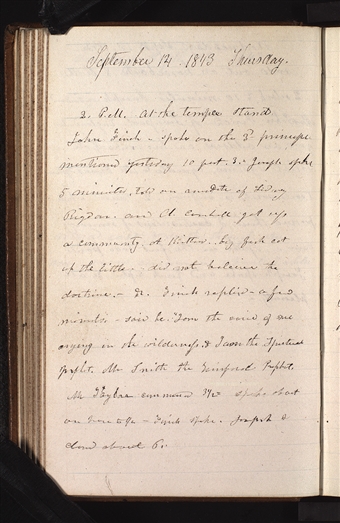 September 14 1843 Thursday.
2. P.M. At the temple stand
John Finch - spoke on the 3d principle
mentioned yesterday 10 past 3. Joseph spoke
5 minutes, told an anecdote of Sidney
Rigdon. and A Cambell get up
a community at Kirtland. big fish eat
up the little - did not believe the
doctrine. - &c. Finch replied - a few
minutes - said he. I am the voice of one
crying in the wilderness, & I am the Spiritual
prophet. Mr Smith the temporal Prophet.
Mr Taylor spoke about
Finch spoke. Joseph
close about 6.